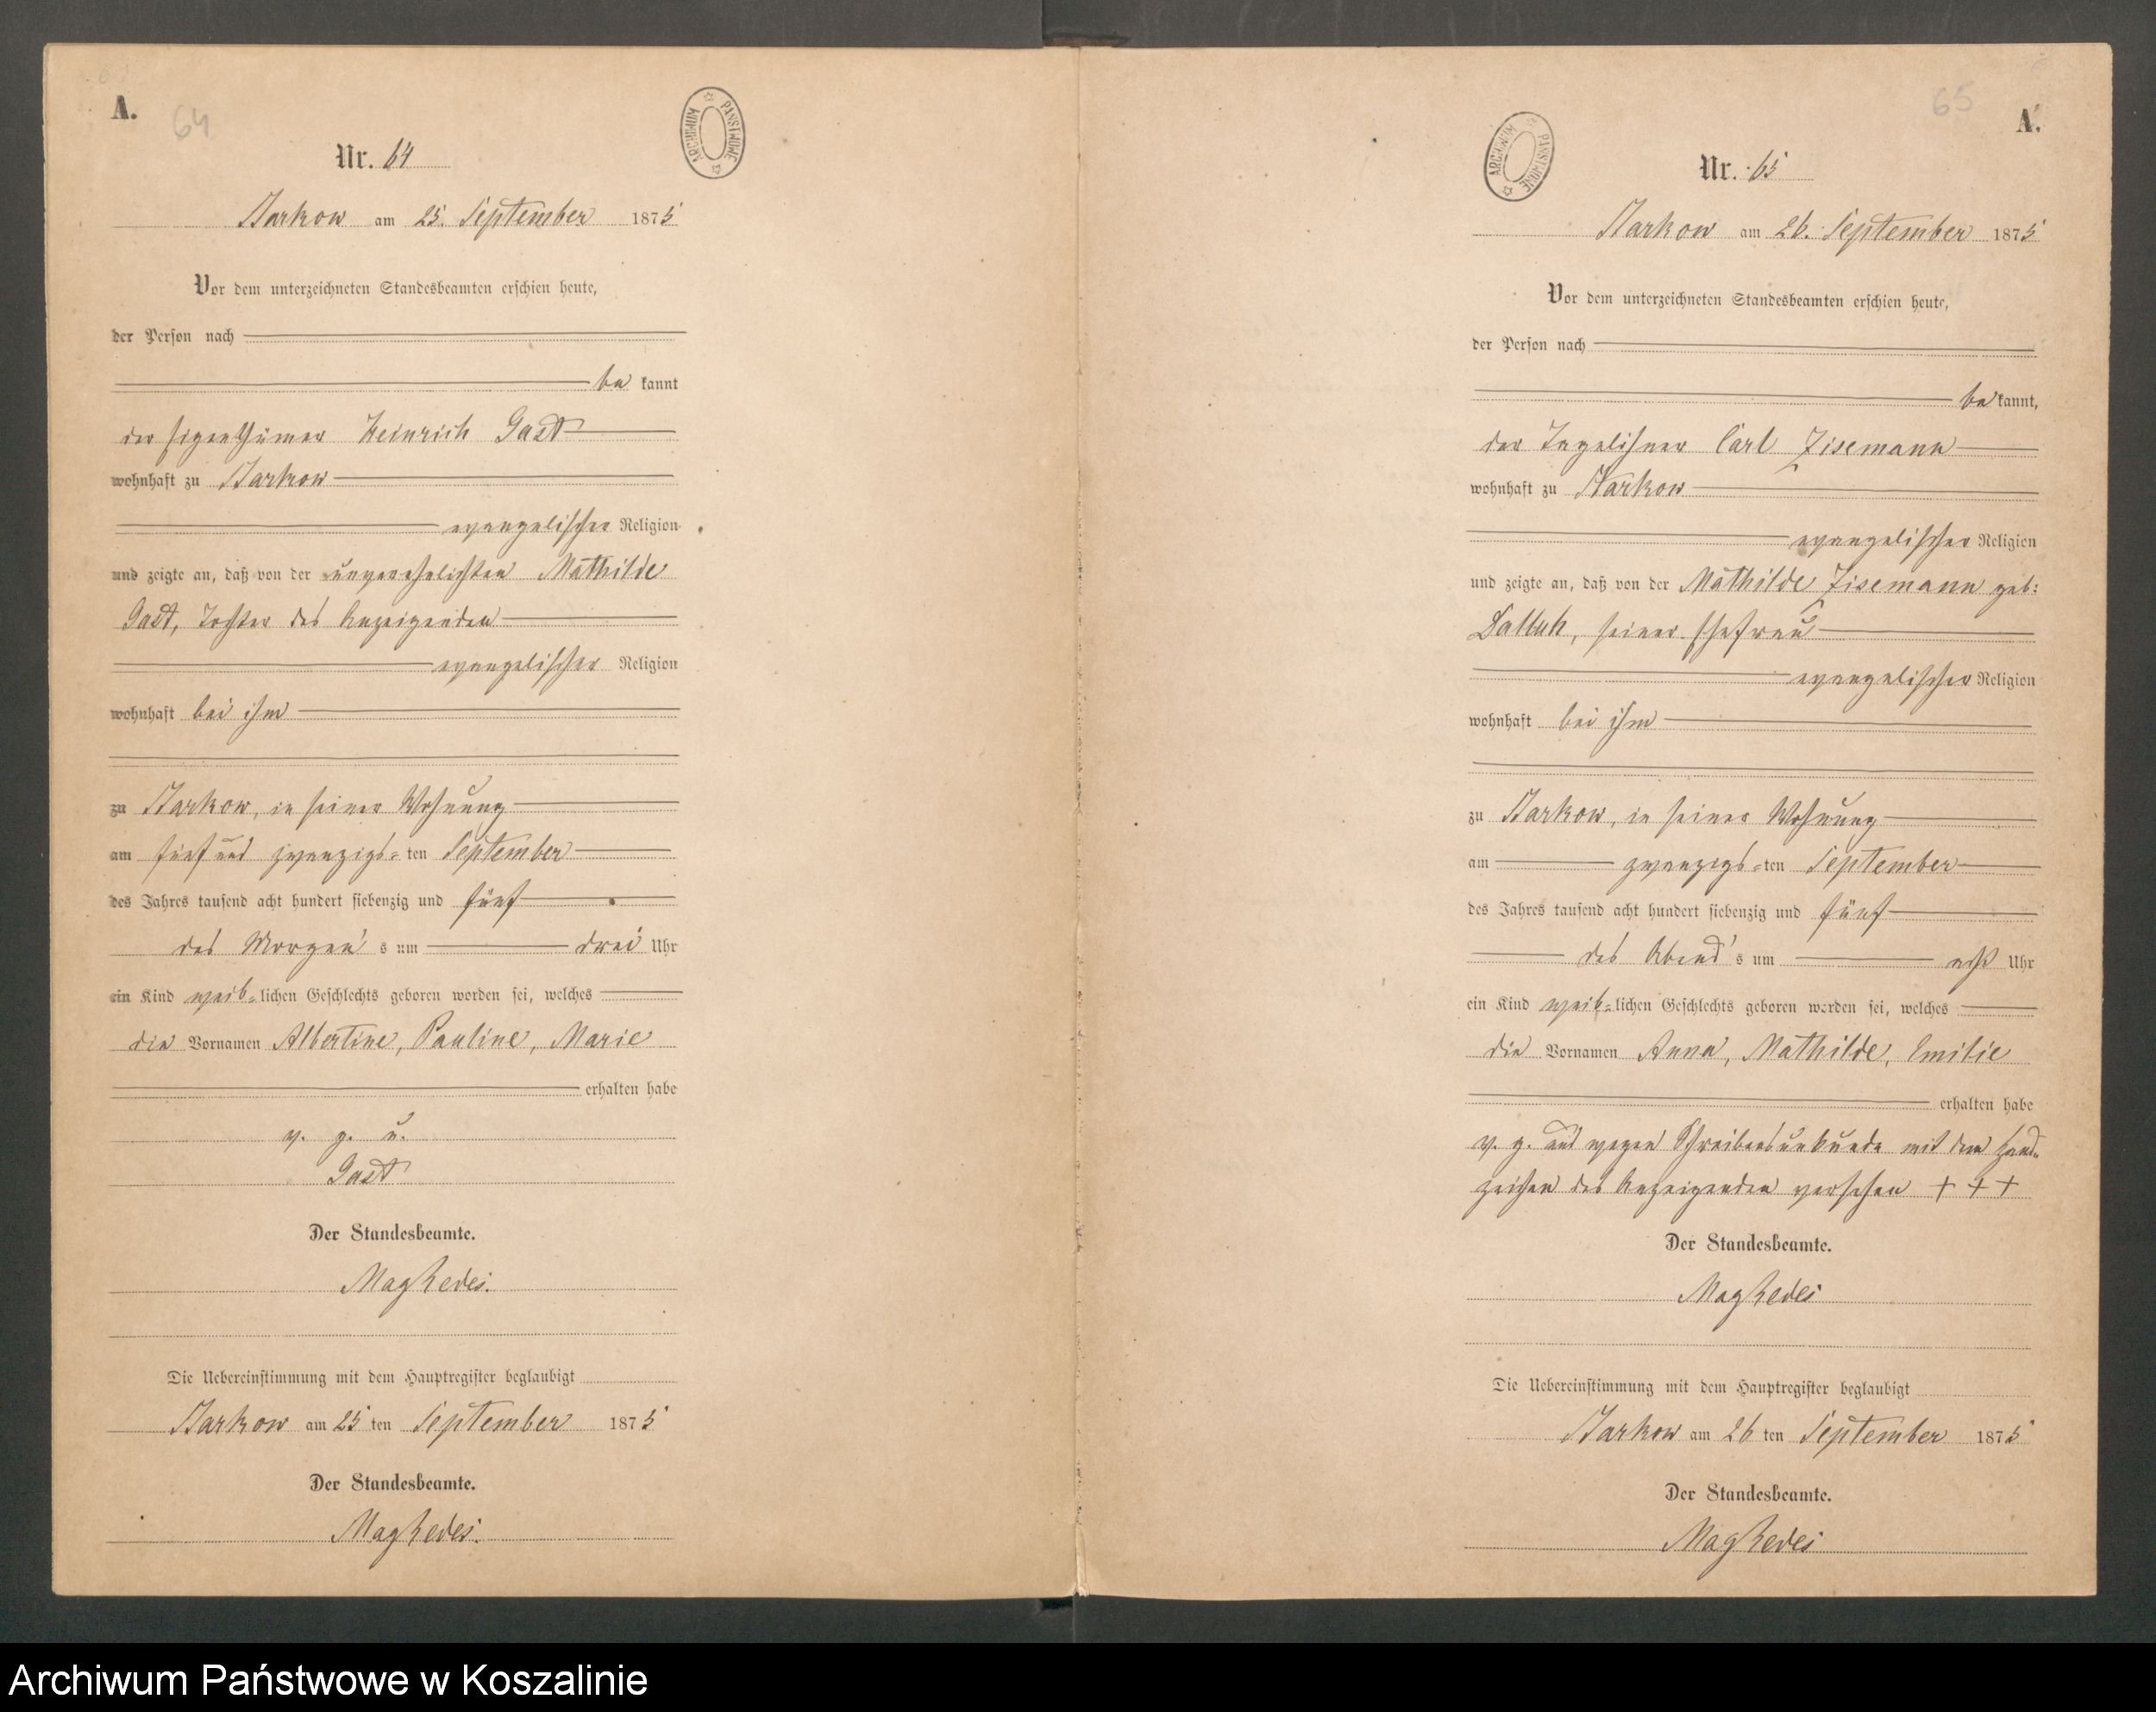 A.
64
Nr. 64
Starkow am 25. September 1875
Vor dem unterzeichneten Standesbeamten erschien heute,
der Person nach
be kannt
der Eigenthümer Heinrich Gast
wohnhaft zu Starkow
evangelischer Religion
und zeigte an, daß von der unverehelichten Mathilde
Gast, Tochter des Anzeigenden
evangelischer Religion
wohnhaft bei ihm
zu Starkow, in seiner Wohnung
am fünf und zwanzigs=ten September
des Jahres tausend acht hundert siebenzig und fünf
des Morgen's um drei Uhr
ein Kind weib=lichen Geschlechts geboren worden sei, welches
die Vornamen Albertine, Pauline, Marie
erhalten habe
v. g. u.
Gast
Der Standesbeamte.
Die Uebereinstimmung mit dem Hauptregister beglaubigt
Starkow am 25 ten September 1875
Der Standesbeamte.
ARCHIWUM PAŃSTWOWE
65
A.
Nr. 65
Starkow am 26. September 1875
Vor dem unterzeichneten Standesbeamten erschien heute,
der Person nach
be kannt,
der Tagelöhner Carl Zisemann
wohnhaft zu Starkow
evangelischer Religion
und zeigte an, daß von der Mathilde Zisemann geb:
seiner Ehefrau
evangelischer Religion
wohnhaft bei ihm
zu Starkow, in seiner Wohnung
am zwanzigs=ten September
des Jahres tausend acht hundert siebenzig und fünf
des Abend's um acht Uhr
ein Kind weib=lichen Geschlechts geboren worden sei, welches
die Vornamen Anna, Mathilde, Emilie
erhalten habe
v. g. und wegen Schreibensunkunde mit dem Hand=
zeichen des Anzeigenden versehen + + +
Der Standesbeamte.
Die Uebereinstimmung mit dem Hauptregister beglaubigt
Starkow am 26 ten September 1875
Der Standesbeamte.
ARCHIWUM PAŃSTWOWE
Archiwum Państwowe w Koszalinie